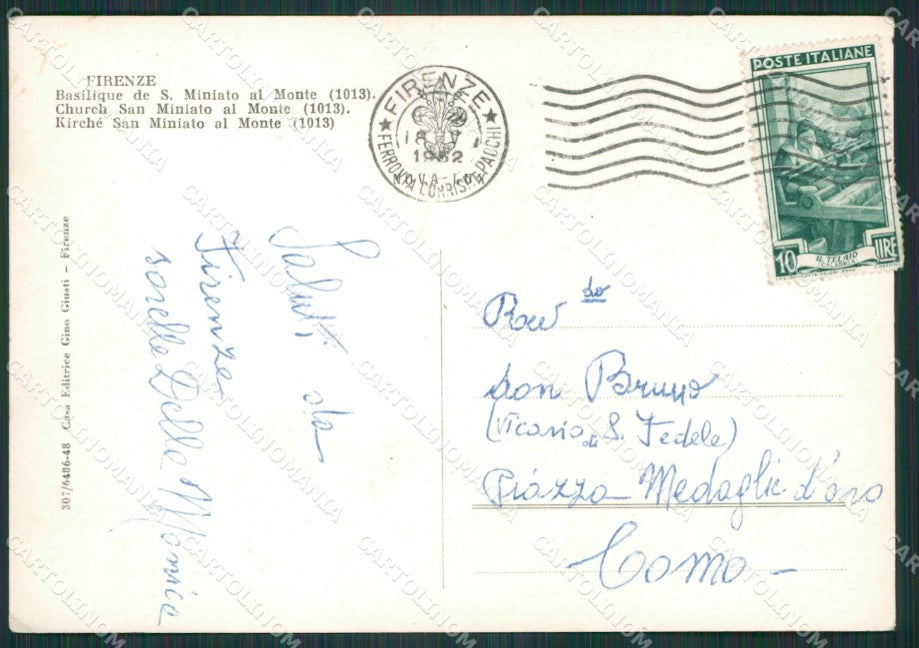 FIRENZE
Basilique de S. Miniato al Monte (1013).
Church San Miniato al Monte (1013).
Kirché San Miniato al Monte (1013)
307/6486-48 Casa Editrice Gino Giusti - Firenze
Saluti da
Firenze
sorelle Della Monica
★ FIRENZE ★
18 V
1952
FERROVIA CORRISP. E PACCHI
POSTE ITALIANE
10 LIRE
IL TELAIO
Rev do
don Bruno
(Vicario di S. Fedele)
Piazza Medaglie d'oro
Como -
CARTOLINOMANIA